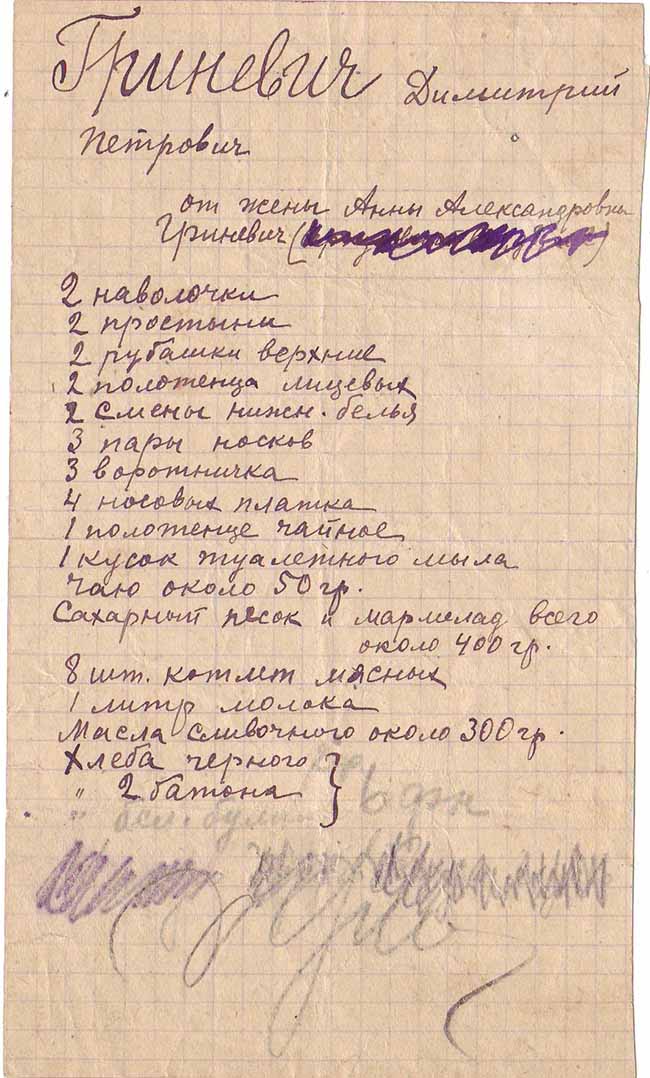 Гриневич Димитрий
Петрович
от жены Анны Александровны
Гриневич (
2 наволочки
2 простыни
2 рубашки верхние
2 полотенца лицевых
2 смены нижн. белья
3 пары носков
3 воротничка
4 носовых платка
1 полотенце чайное
1 кусок туалетного мыла
чаю около 50 гр.
Сахарный песок и мармелад всего
около 400 гр.
8 шт. котлет мясных
1 литр молока
Масла сливочного около 300 гр.
Хлеба черного }
" 2 батона